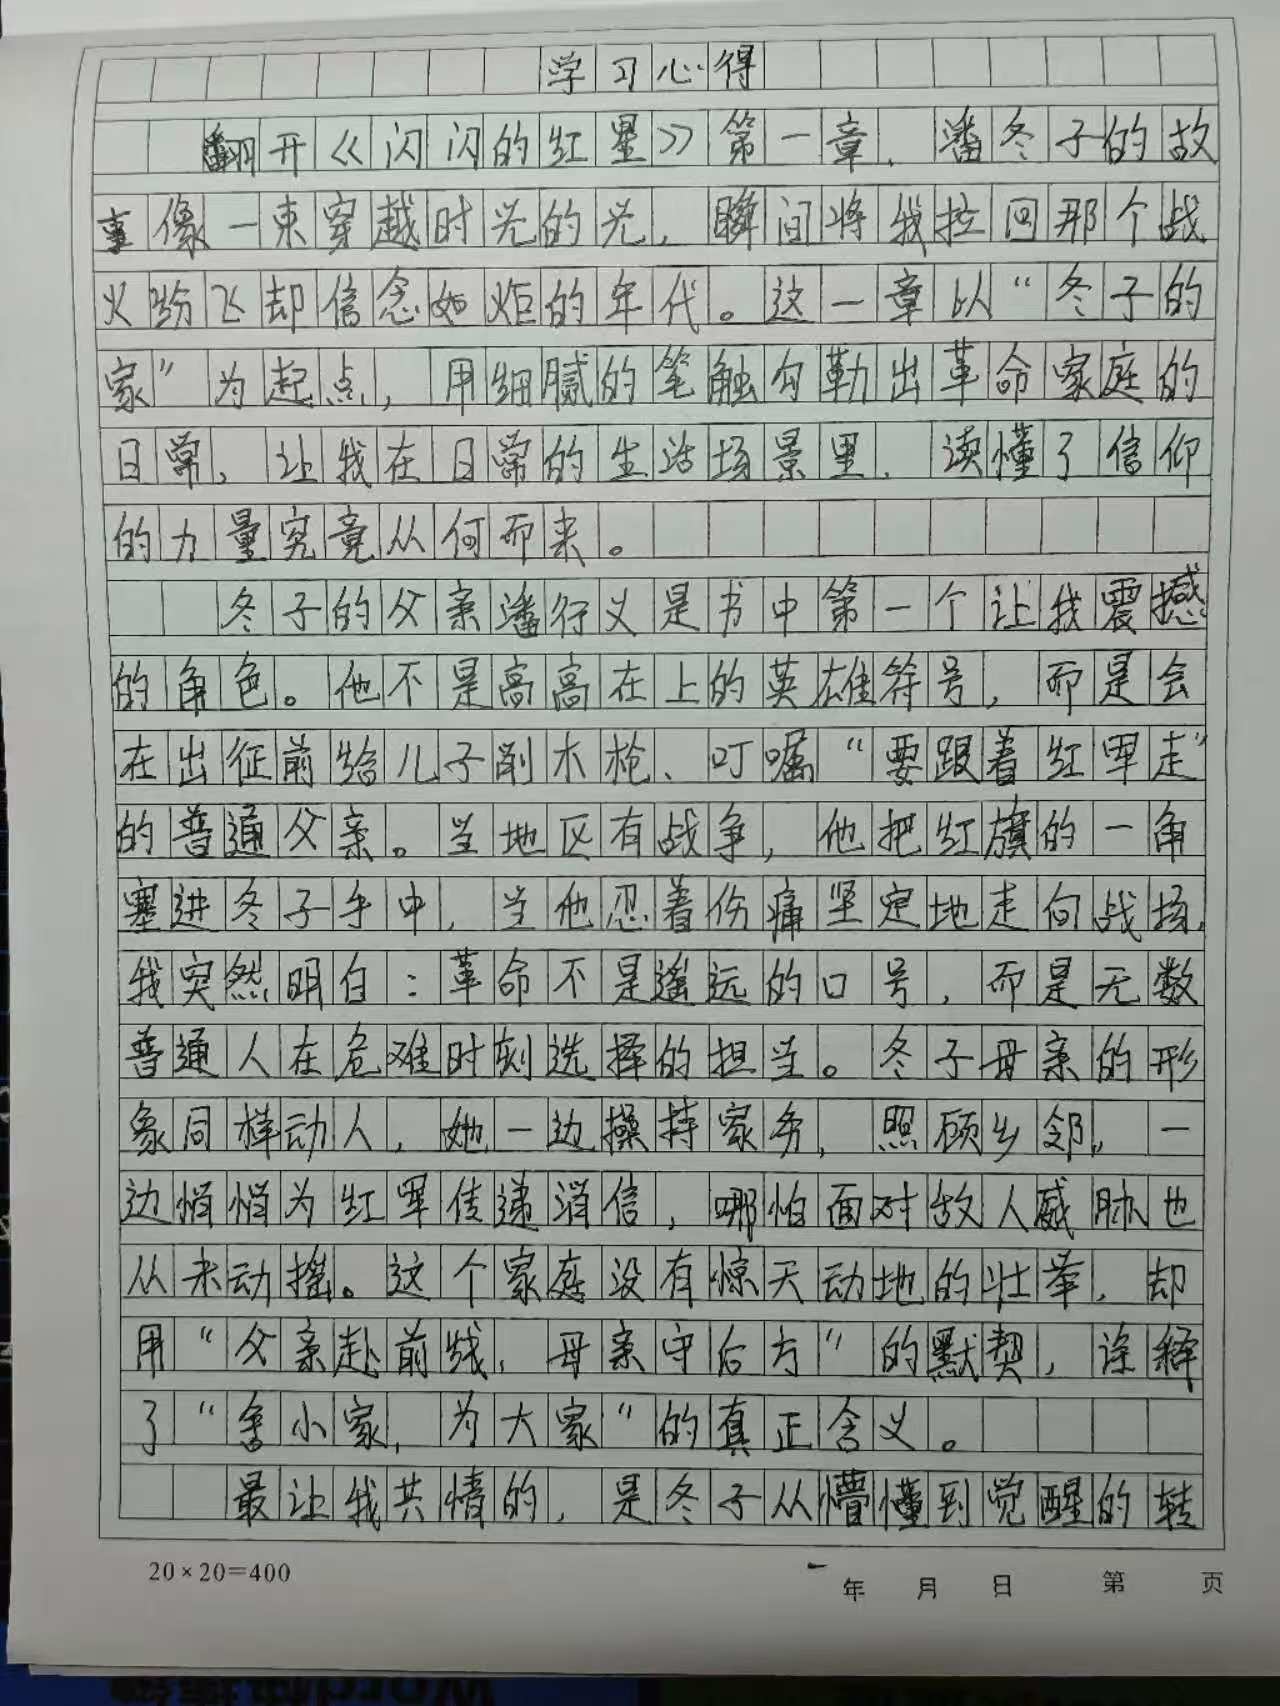 学习心得
翻开《闪闪的红星》第一章，潘冬子的故
事像一束穿越时光的光，瞬间将我拉回那个战
火纷飞却信念如炬的年代。这一章以“冬子的
家”为起点，用细腻的笔触勾勒出革命家庭的
日常，让我在日常的生活场景里，读懂了信仰
的力量究竟从何而来。
冬子的父亲潘行义是书中第一个让我震撼
的角色。他不是高高在上的英雄符号，而是会
在出征前给儿子削木枪、叮嘱“要跟着红军走”
的普通父亲。当地区有战争，他把红旗的一角
塞进冬子手中，当他忍着伤痛坚定地走向战场，
我突然明白：革命不是遥远的口号，而是无数
普通人在危难时刻选择的担当。冬子母亲的形
象同样动人，她一边操持家务，照顾乡邻，一
边悄悄为红军传递消信，哪怕面对敌人威胁也
从未动摇。这个家庭没有惊天动地的壮举，却
用“父亲赴前线，母亲守后方”的默契，诠释
了“舍小家，为大家”的真正含义。
最让我共情的，是冬子从懵懂到觉醒的转
20×20=400
年 月 日 第 页